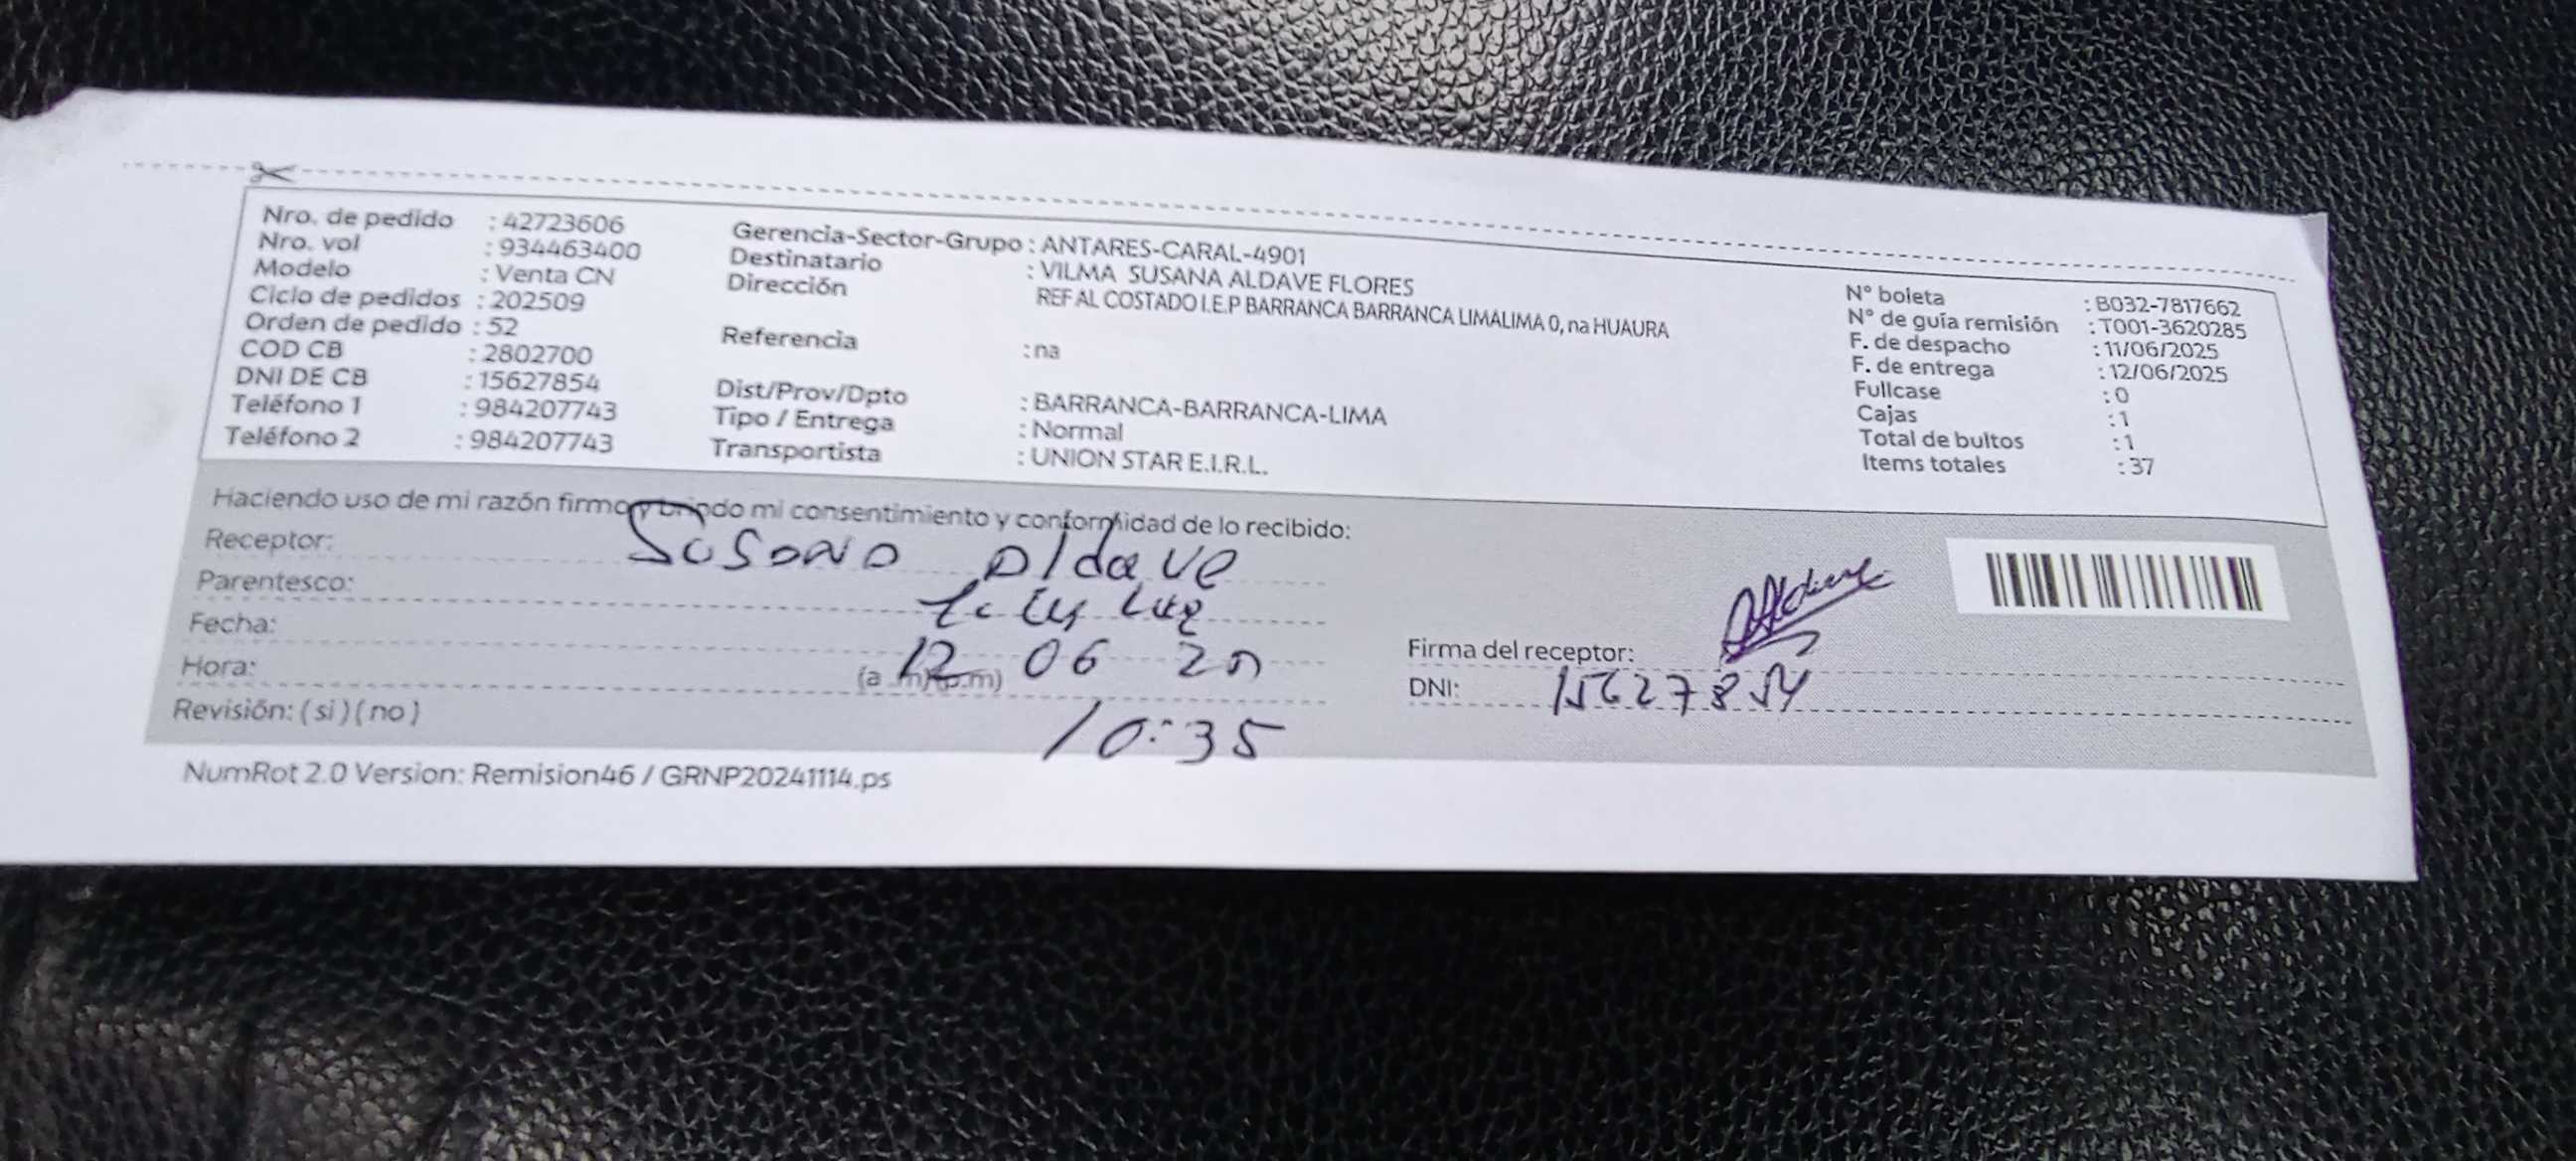 Nro. de pedido : 42723606
Nro. vol : 934463400
Modelo : Venta CN
Ciclo de pedidos : 202509
Orden de pedido : 52
COD CB : 2802700
DNI DE CB : 15627854
Teléfono 1 : 984207743
Teléfono 2 : 984207743
Gerencia-Sector-Grupo : ANTARES-CARAL-4901
Destinatario : VILMA SUSANA ALDAVE FLORES
Dirección REF AL COSTADO I.E.P BARRANCA BARRANCA LIMALIMA 0, na HUAURA
Referencia : na
Dist/Prov/Dpto : BARRANCA-BARRANCA-LIMA
Tipo / Entrega : Normal
Transportista : UNION STAR E.I.R.L.
N° boleta : B032-7817662
N° de guía remisión : T001-3620285
F. de despacho : 11/06/2025
F. de entrega : 12/06/2025
Fullcase : 0
Cajas : 1
Total de bultos : 1
Items totales : 37
Haciendo uso de mi razón firmo y brindo mi consentimiento y conformidad de lo recibido:
Receptor: Susana Aldave
Parentesco:
Fecha: 12 06 25
Hora: (a.m)(p.m) 10:35
Revisión: ( si ) ( no )
Firma del receptor:
DNI: 15627854
NumRot 2.0 Version: Remision46 / GRNP20241114.ps